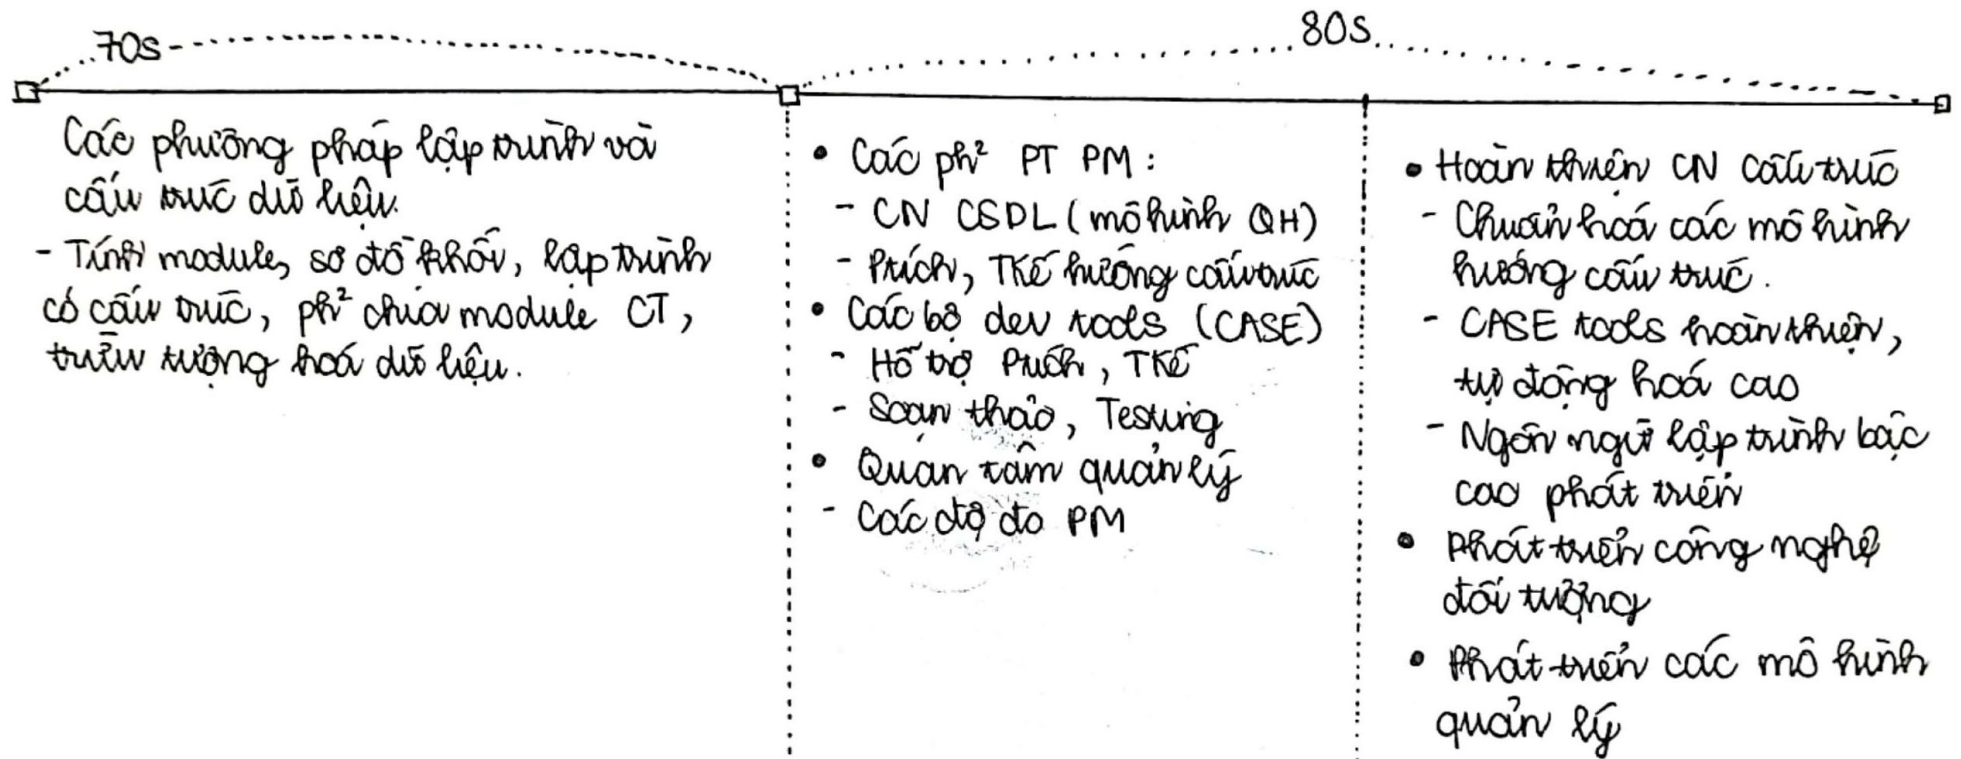 70s
80s
Các phương pháp lập trình và
cấu trúc dữ liệu.
- Tính module, sơ đồ khối, lập trình
có cấu trúc, ph² chia module CT,
trừu tượng hoá dữ liệu.
• Các ph² PT PM:
- CN CSDL (mô hình QH)
- Ptích, TKế hướng cấu trúc
• Các bộ dev tools (CASE)
- Hỗ trợ Ptích, TKế
- Soạn thảo, Testing
• Quan tâm quản lý
- Các độ đo PM
• Hoàn thiện CN cấu trúc
- Chuẩn hoá các mô hình
hướng cấu trúc.
- CASE tools hoàn thiện,
tự động hoá cao
- Ngôn ngữ lập trình bậc
cao phát triển
• Phát triển công nghệ
đối tượng
• Phát triển các mô hình
quản lý